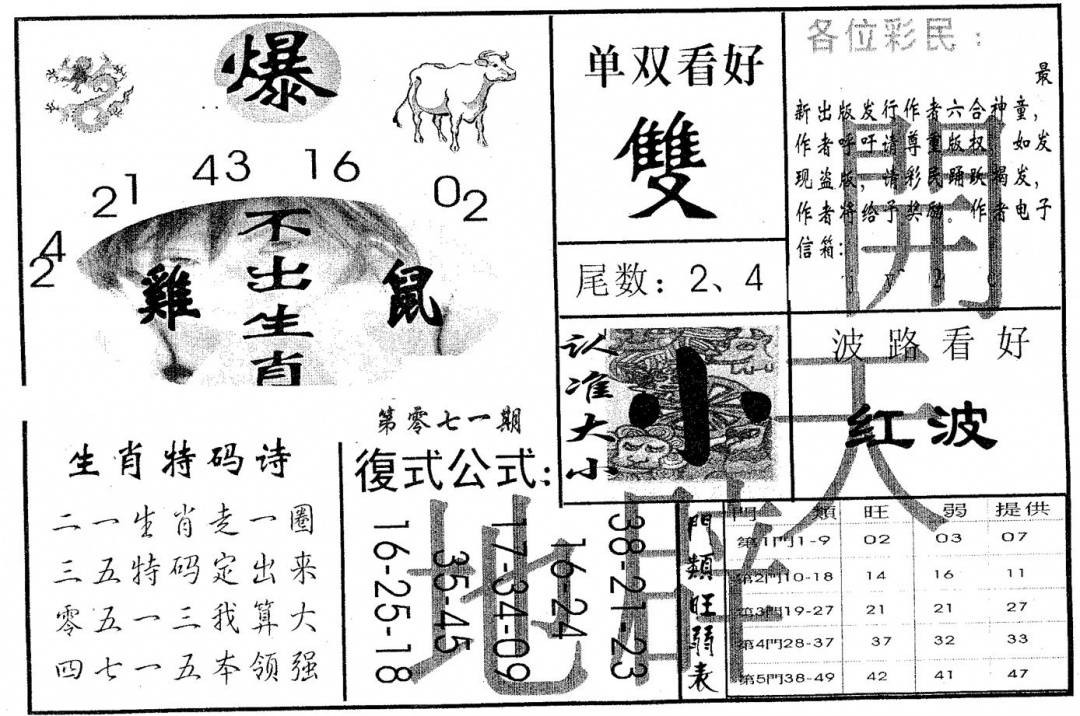 爆
24
21
43
16
02
不出生肖
雞
鼠
单双看好
雙
尾数：2、4
各位彩民：
最
新出版发行作者六合神童，
作者呼吁请尊重版权。如发
现盗版，请彩民踊跃揭发，
作者将给予奖励。作者电子
信箱：
开
天
地
认准大小
小
波路看好
红波
第零七一期
生肖特码诗
二一生肖走一圈
三五特码定出来
零五一三我算大
四七一五本领强
復式公式：
16-25-18
35-45
17-34-09
16-24
38-21-23
門類旺弱表
門類 旺 弱 提供
第1門1-9 02 03 07
第2門10-18 14 16 11
第3門19-27 21 21 27
第4門28-37 37 32 33
第5門38-49 42 41 47